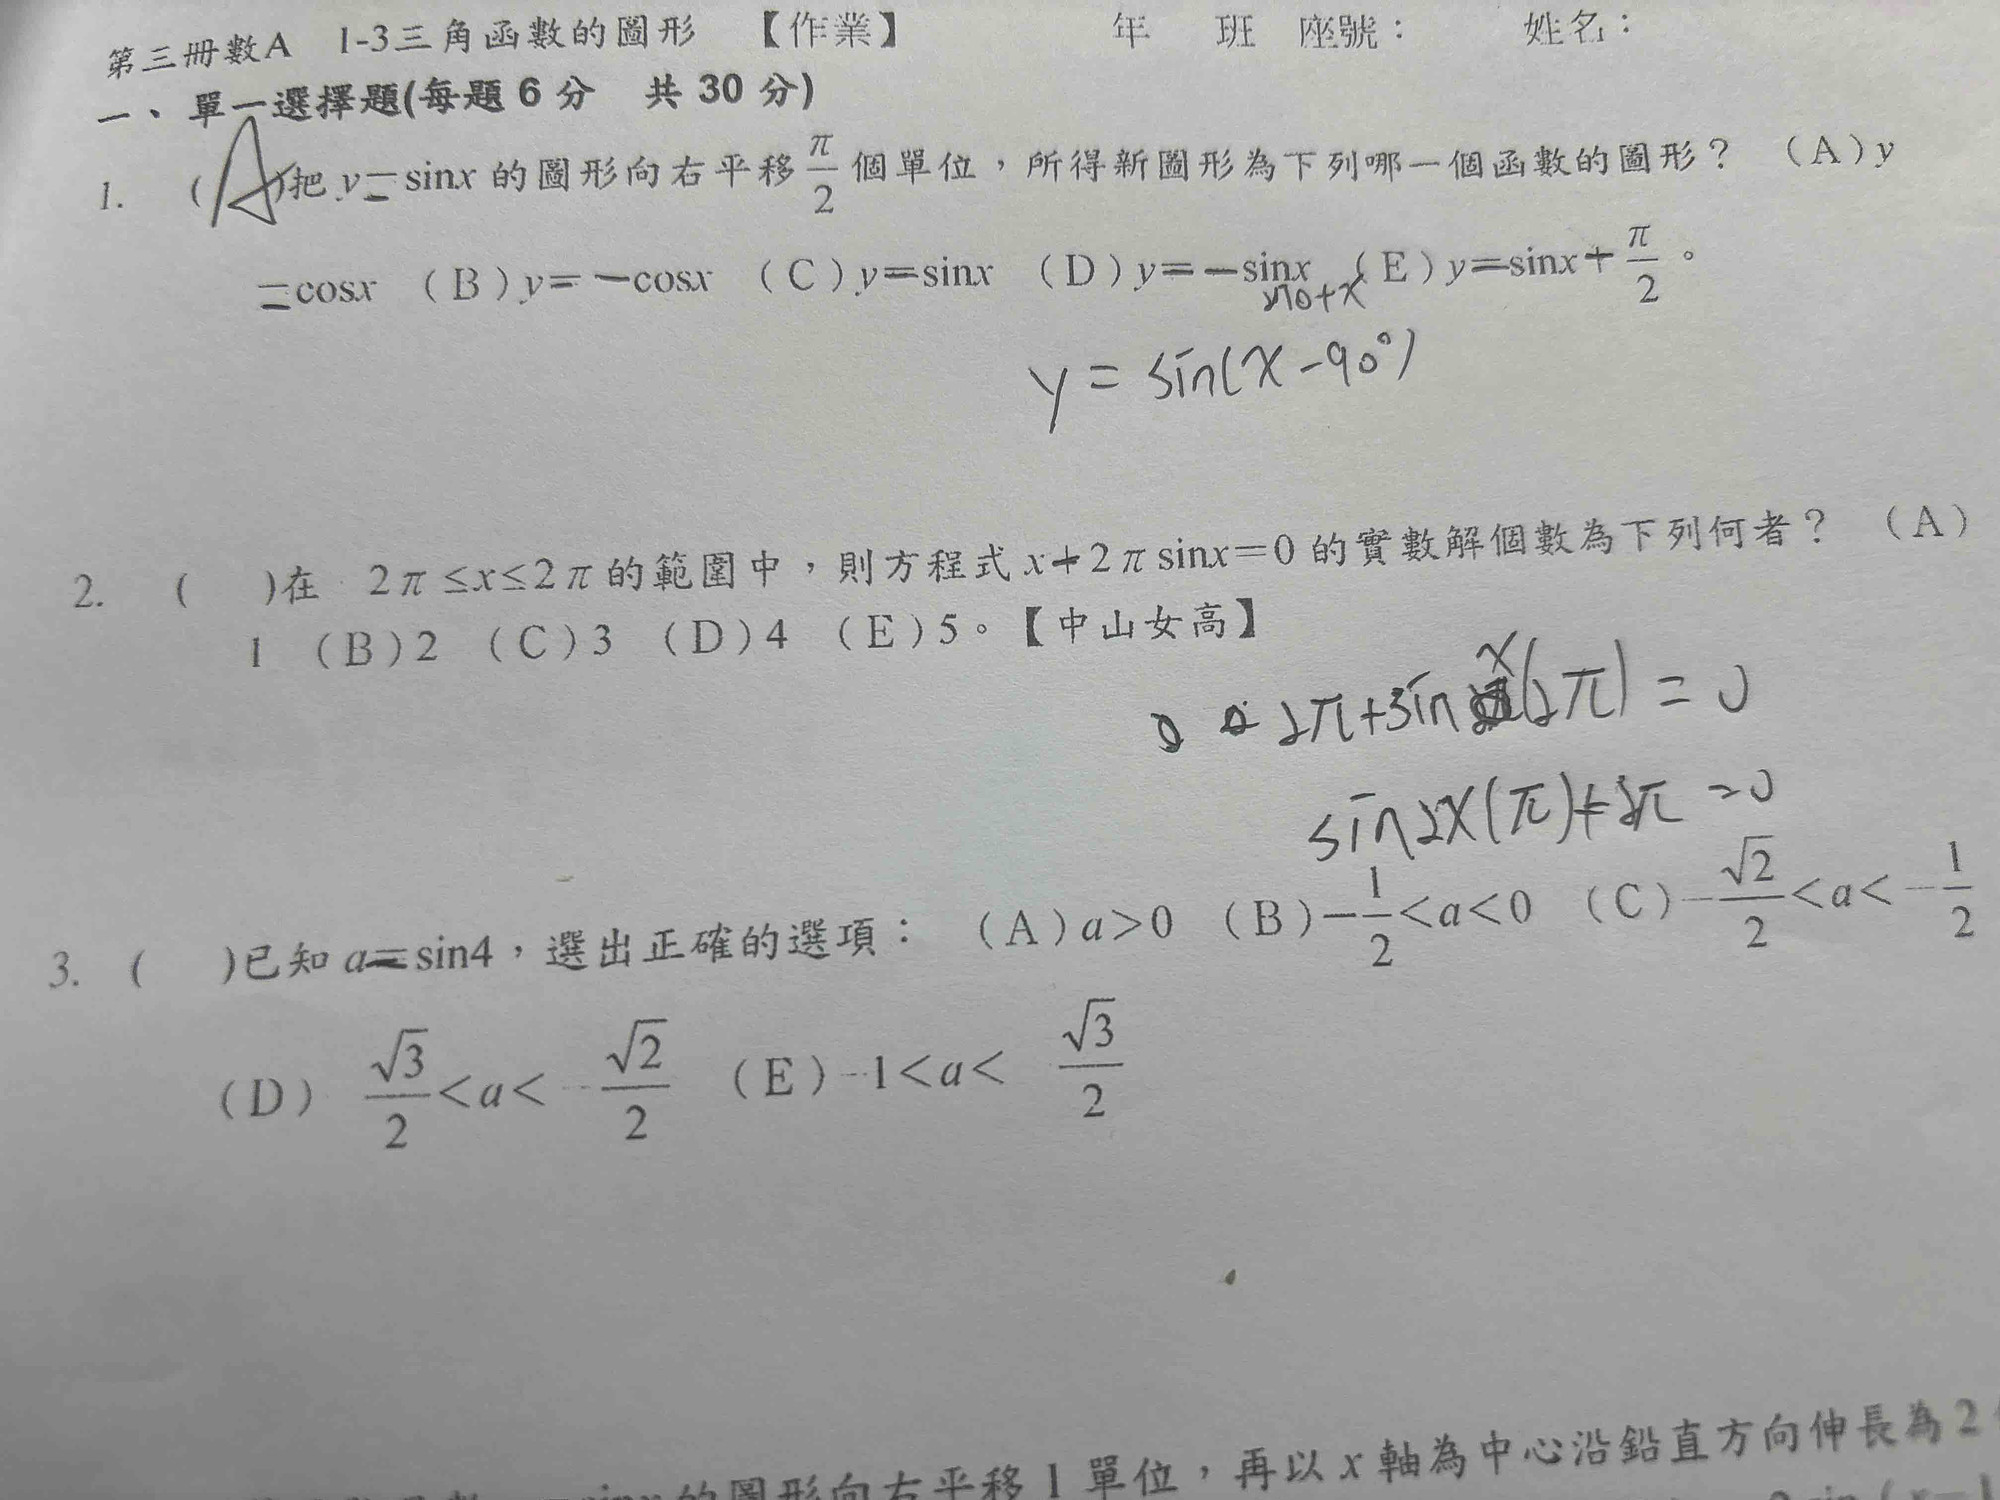 第三冊數A 1-3三角函數的圖形 【作業】 年 班 座號： 姓名：
一、單一選擇題(每題 6 分 共 30 分)
1. (A)把 y=sinx 的圖形向右平移 π/2 個單位，所得新圖形為下列哪一個函數的圖形？ (A)y
=cosx (B)y=-cosx (C)y=sinx (D)y=-sinx (E)y=sinx+π/2。
y=sin(x-90°)
2. ( )在 2π≤x≤2π的範圍中，則方程式 x+2πsinx=0 的實數解個數為下列何者？ (A)
1 (B)2 (C)3 (D)4 (E)5。【中山女高】
2π+sinx(2π)=0
sin2x(π)+2π=0
3. ( )已知 a=sin4，選出正確的選項： (A)a>0 (B)-1/2<a<0 (C)-√2/2<a<-1/2
(D) √3/2<a<-√2/2 (E)-1<a< √3/2
的圖形向右平移 1 單位，再以 x 軸為中心沿鉛直方向伸長為 2